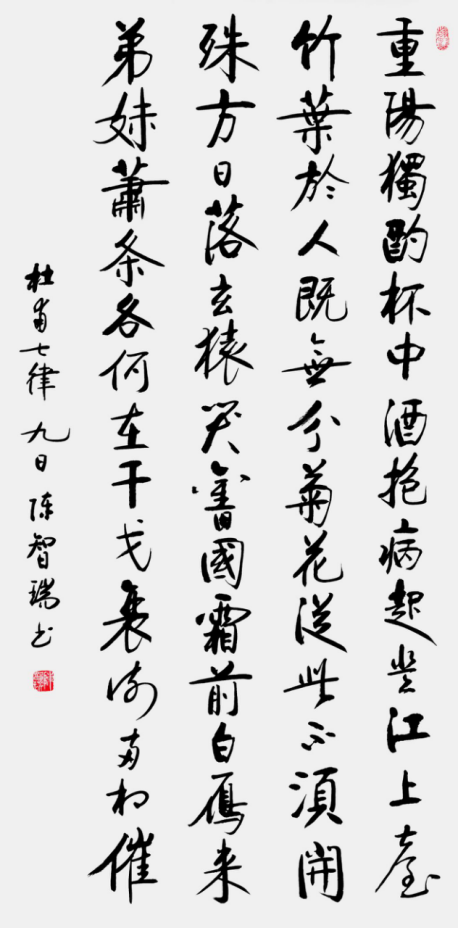 重陽獨酌杯中酒抱病起登江上臺
竹葉於人既無分菊花從此不須開
殊方日落玄猿哭舊國霜前白鴈来
弟妹蕭条各何在干戈衰謝兩相催
杜甫七律 九日 陈智瑞书